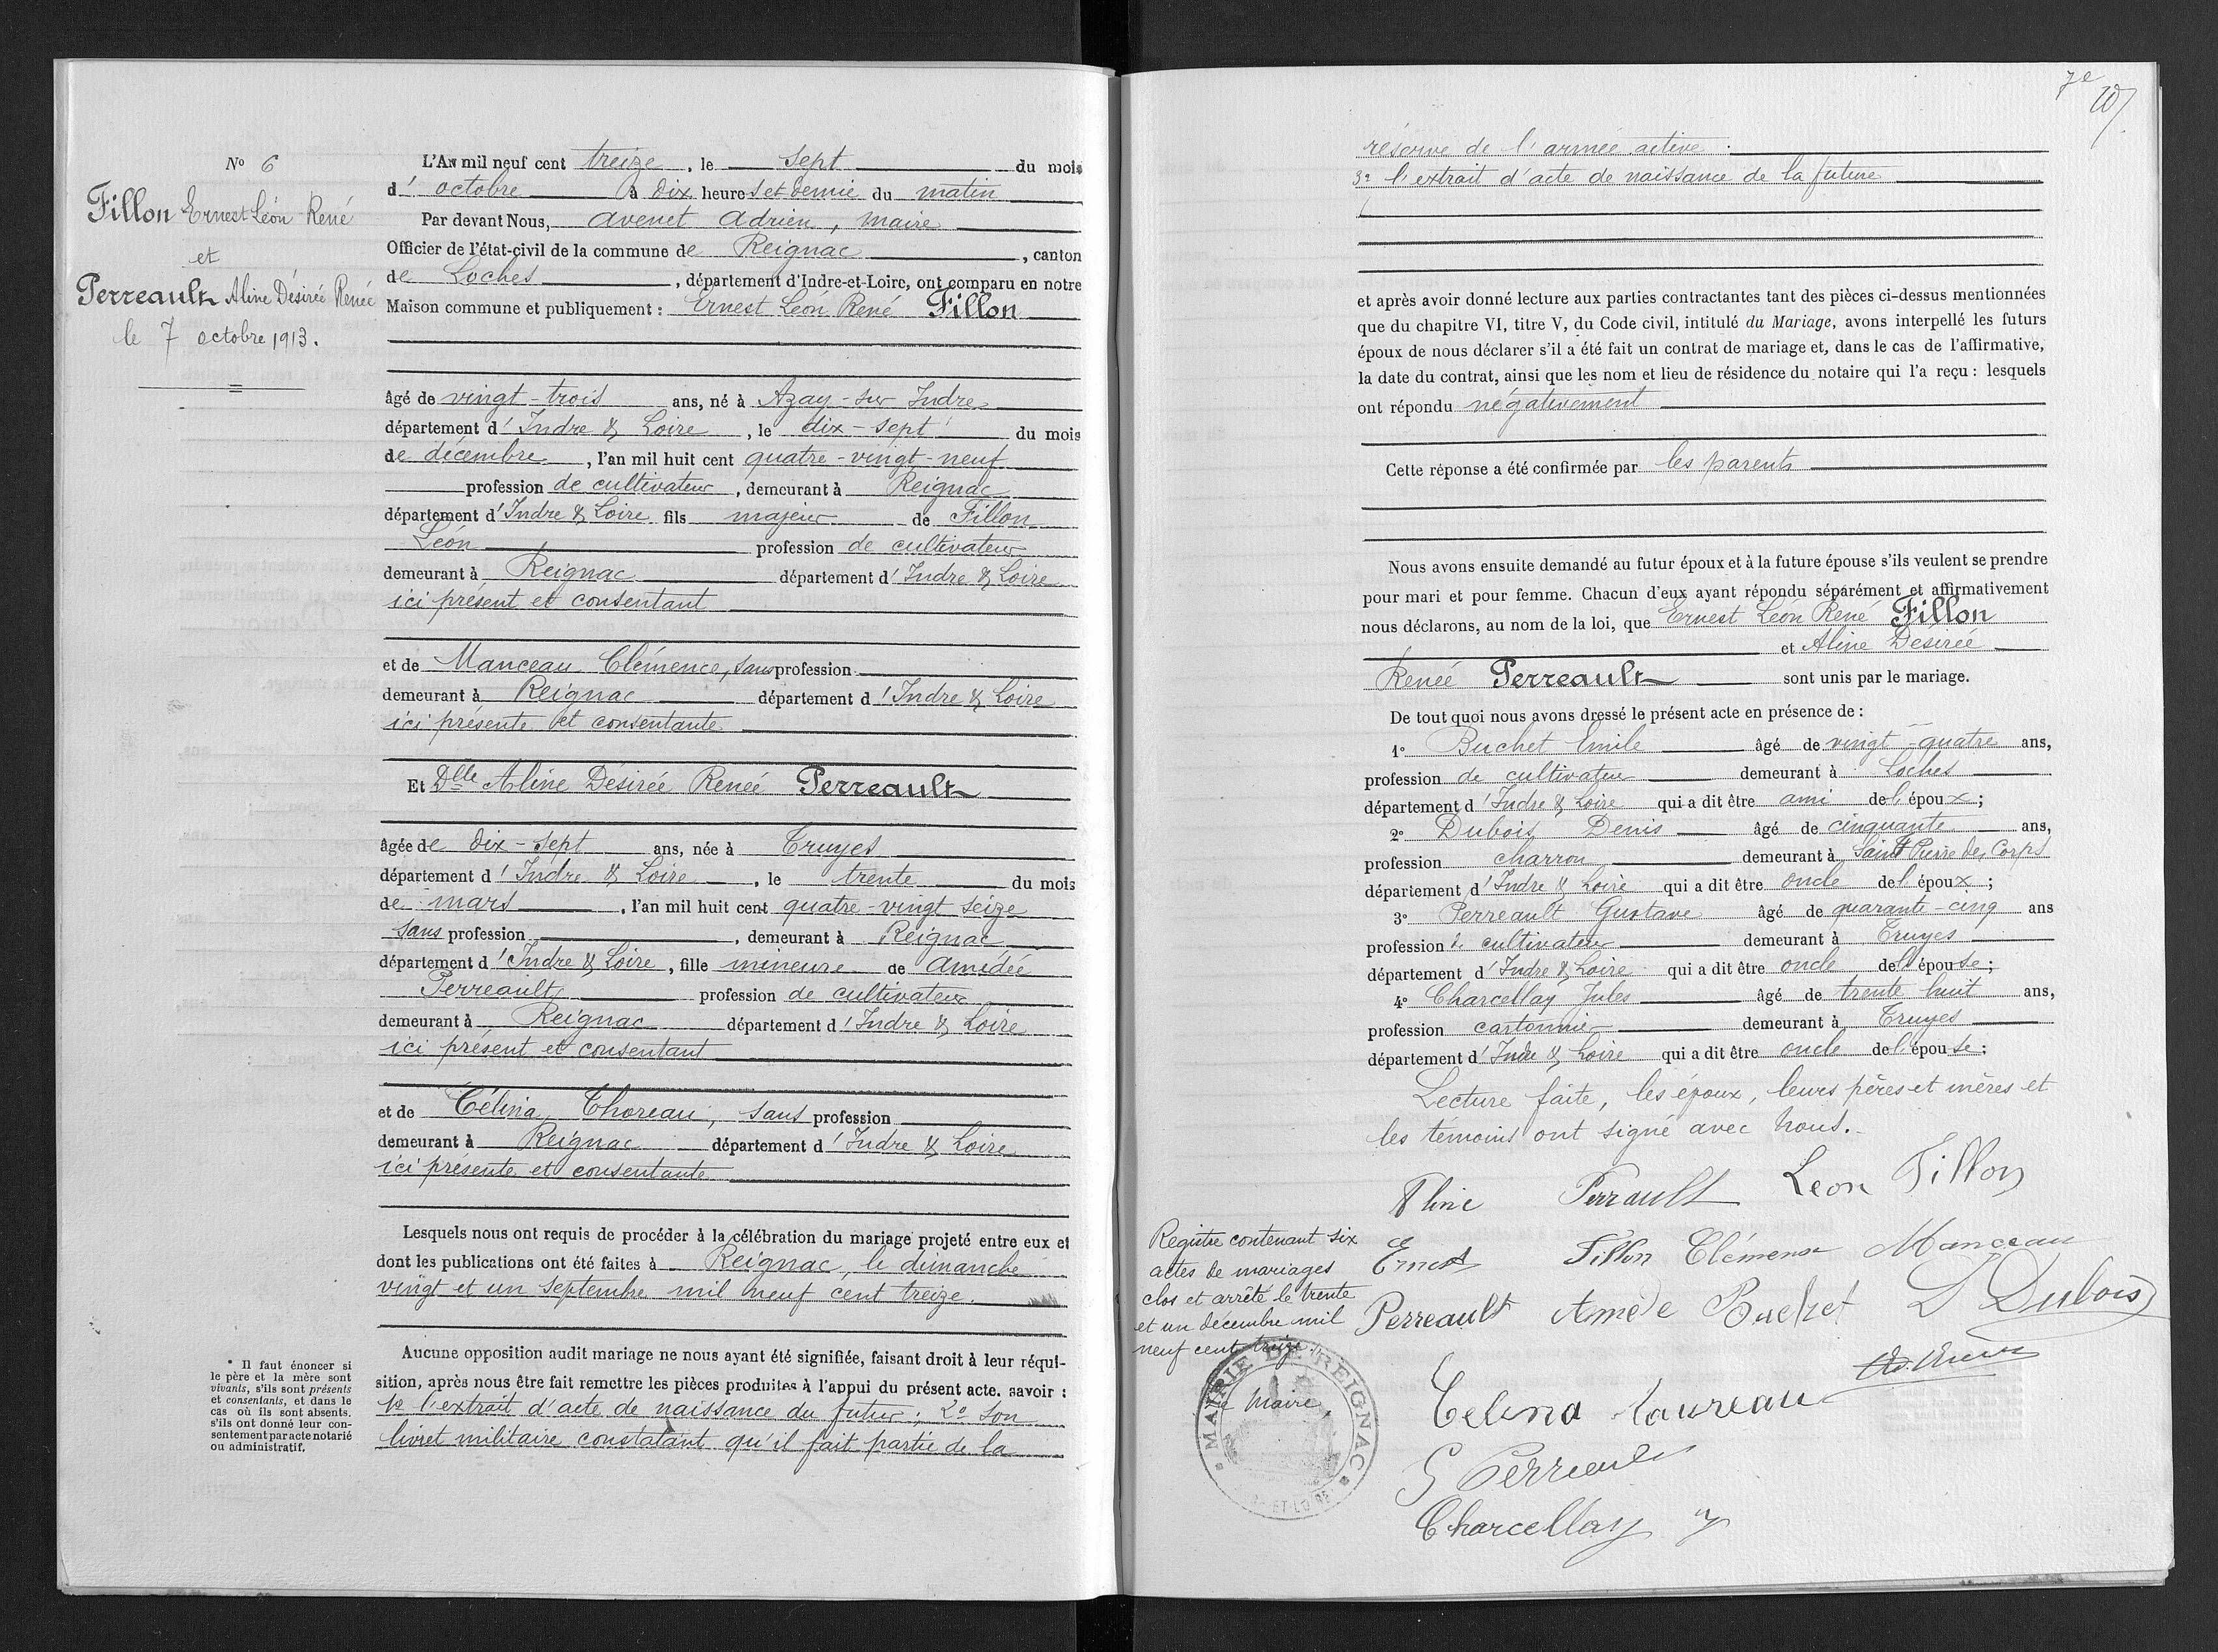 N° 6
Fillon Ernest Léon René
et
Perreault Aline Désirée Renée
le 7 octobre 1913.
L'An mil neuf cent treize, le sept du mois
d'octobre à dix heures et demie du matin
Par devant Nous, Avenet Adrien, maire
Officier de l'état-civil de la commune de Reignac, canton
de Loches, département d'Indre-et-Loire, ont comparu en notre
Maison commune et publiquement : Ernest Léon René Fillon
âgé de vingt-trois ans, né à Azay-sur Indre
département d'Indre & Loire, le dix-sept du mois
de décembre, l'an mil huit cent quatre-vingt-neuf
profession de cultivateur, demeurant à Reignac
département d'Indre & Loire fils majeur de Fillon
Léon profession de cultivateur
demeurant à Reignac département d'Indre & Loire
ici présent et consentant
et de Manceau Clémence, sans profession
demeurant à Reignac département d'Indre & Loire
ici présente et consentante
Et Dlle Aline Désirée Renée Perreault
âgée de dix-sept ans, née à Truyes
département d'Indre & Loire, le trente du mois
de mars, l'an mil huit cent quatre-vingt seize
sans profession, demeurant à Reignac
département d'Indre & Loire, fille mineure de Amédée
Perreault profession de cultivateur
demeurant à Reignac département d'Indre & Loire
ici présent et consentant
et de Célina Thoreau, sans profession
demeurant à Reignac département d'Indre & Loire
ici présente et consentante
Lesquels nous ont requis de procéder à la célébration du mariage projeté entre eux et
dont les publications ont été faites à Reignac, le dimanche
vingt et un septembre mil neuf cent treize.
Aucune opposition audit mariage ne nous ayant été signifiée, faisant droit à leur réqui-
sition, après nous être fait remettre les pièces produites à l'appui du présent acte. savoir :
1° l'extrait d'acte de naissance du futur, 2° son
livret militaire constatant qu'il fait partie de la
* Il faut énoncer si
le père et la mère sont
vivants, s'ils sont présents
et consentants, et dans le
cas où ils sont absents,
s'ils ont donné leur con-
sentement par acte notarié
ou administratif.
7e
réserve de l'armée active :
3° l'extrait d'acte de naissance de la future
et après avoir donné lecture aux parties contractantes tant des pièces ci-dessus mentionnées
que du chapitre VI, titre V, du Code civil, intitulé du Mariage, avons interpellé les futurs
époux de nous déclarer s'il a été fait un contrat de mariage et, dans le cas de l'affirmative,
la date du contrat, ainsi que les nom et lieu de résidence du notaire qui l'a reçu : lesquels
ont répondu négativement
Cette réponse a été confirmée par les parents
Nous avons ensuite demandé au futur époux et à la future épouse s'ils veulent se prendre
pour mari et pour femme. Chacun d'eux ayant répondu séparément et affirmativement
nous déclarons, au nom de la loi, que Ernest Léon René Fillon
et Aline Desirée
Renée Perreault sont unis par le mariage.
De tout quoi nous avons dressé le présent acte en présence de :
1° Buchet Emile âgé de vingt-quatre ans,
profession de cultivateur demeurant à Loches
département d'Indre & Loire qui a dit être ami de l'époux ;
2° Dubois Denis âgé de cinquante ans,
profession charron demeurant à Saint Pierre des Corps
département d'Indre & Loire qui a dit être oncle de l'époux ;
3° Perreault Gustave âgé de quarante-cinq ans
profession de cultivateur demeurant à Truyes
département d'Indre & Loire qui a dit être oncle de l'épouse ;
4° Charcellay Jules âgé de trente huit ans,
profession cartonnier demeurant à Truyes
département d'Indre & Loire qui a dit être oncle de l'épouse ;
Lecture faite, les époux, leurs pères et mères et
les témoins ont signé avec nous.
Aline Perrault Leon Fillon
Ernest Fillon Clémence Manceau
Perreault Amédé Buchet D Dubois
Celina Taureau
G Perreault
Charcellay J
Registre contenant six
actes de mariages
clos et arrêté le trente
et un décembre mil
neuf cent treize.
Le Maire,
MAIRIE DE REIGNAC
ET-LOIRE